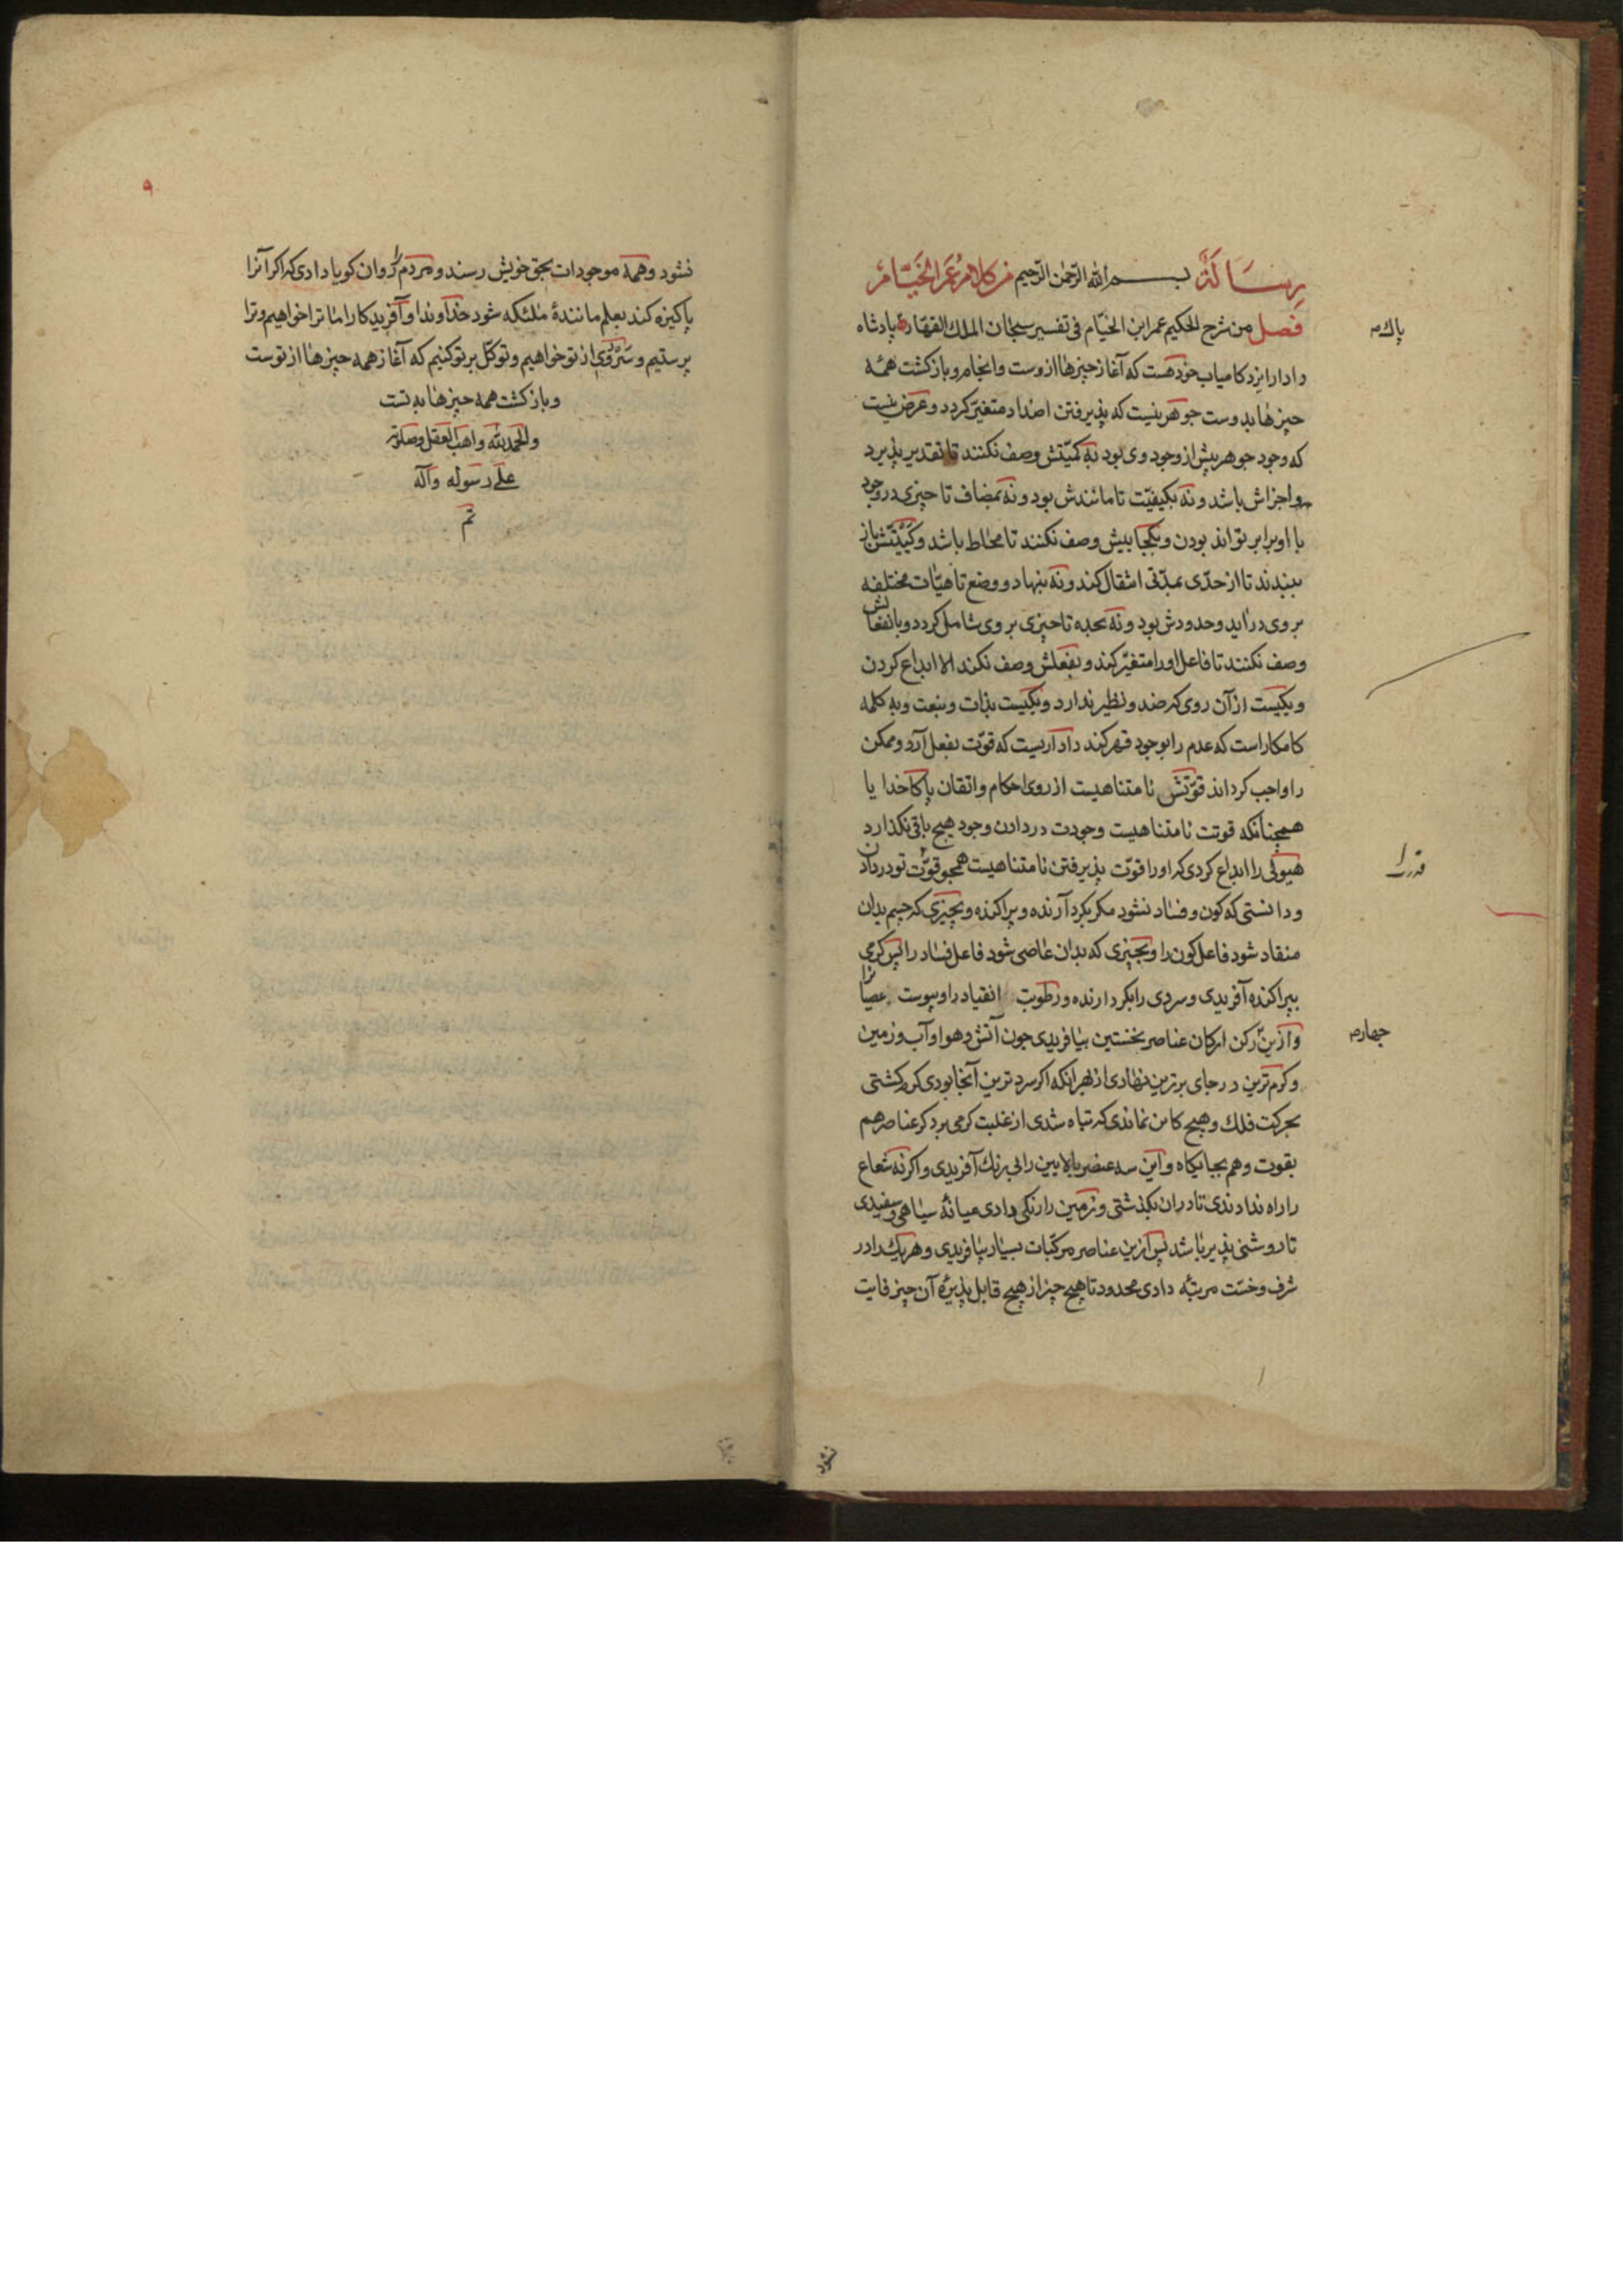 رسالة بسم الله الرحمن الرحیم من کلام عمر الخیام
فصل من شرح الحکیم عمر ابن الخیّام فی تفسیر سبحان الملك القهار پادشاه
پاك م
دادار ایزد کامیاب خودهست که آغاز چیزها از وست وانجام وبازکشت همه
چیزها بدوست جوهر نیست که پذیرفتن اضداد متغیّر کردد وعرض نیست
که وجود جوهر پیش از وجود وی بود نه کمیّتش وصف نکنند تا تقدیر پذیرد
واجزاش باشد ونه بکیفیّت تا مانندش بود ونه بمضاف تا چیزی در وجود
با او برابر تواند بودن وبکجاییش وصف نکنند تا محاط باشد وکیئتش باز
ببندند تا از حدّی بمدّتی انتقال کند ونه بنهاد ووضع تا هیّات مختلفه
بر وی دراید وحدودش بود ونه بجده تا چیزی بر وی شامل کردد وبانفعالش
وصف نکنند تا فاعل اورا متغیّر کند وبفعلش وصف نکند الا ابداع کردن
ویکیست از آن روی که ضد ونظیر ندارد ویکیست بذات وبنعت وبه کلمه
کامکار است که عدم را بوجود قهر کند داداریست که قوّت بفعل آرد وممکن
را واجب کرداند قوّتش نامتناهیست از روی احکام واتقان پاکا خدا یا
همچنانکه قوتت نامتناهیست وجودت در دادن وجود هیچ باقی نکذارد
هیولی را ابداع کردی که اورا قوّت پذیرفتن نامتناهیست همچو قوّت تو در دادن
قدرت را
ودانستی که کون وفساد نشود مکر بکرد آرنده وپراکنده وبچیزی که جسم بدان
منقاد شود فاعل کون را وبچیزی که بدان عاصی شود فاعل فساد را پس کرمی
بپراکنده آفریدی وسردی را بکرد ارنده ورطوبت انقیاد را ویبوست عصیانرا
وازین رکن ارکان عناصر نخستین بیافریدی چون آتش وهوا وآب وزمین
چهارم
وکرم‌ترین در جای برترین نهادی از بهر آنکه اکر سردترین آنجا بودی کرم کشتی
بحرکت فلك وهیچ کاین نماندی که تباه شدی از غلبت کرمی بر دکر عناصر هم
بقوت وهم بجایکاه واین سه عنصر بالایین را بی‌رنك آفریدی واکرنه شعاع
را راه ندادندی تا دران بکذشتی وزمین را رنکی دادی میانهٔ سیاهی وسفیدی
تا روشنی پذیر باشد پس ازین عناصر مرکبات بسیار بیافریدی وهریك را در
شرف وخسّت مرتبهٔ دادی محدود تا هیچ چیز از هیچ قابل پذیرهٔ آن چیز فایت
نشود
۹
نشود وهمه موجودات بحق خویش رسند ومردم را روان کویا دادی که اکر آنرا
پاکیزه کند بعلم مانندهٔ ملئکه شود خداوندا وآفریدکارا ما ترا خواهیم وترا
پرستیم و از تو خواهیم وتوکّل بر تو کنیم که آغاز همه چیزها از توست
وبازکشت همه چیزها به تست
والحمد لله واهب العقل وصلوته
علی رسوله وآله
تم